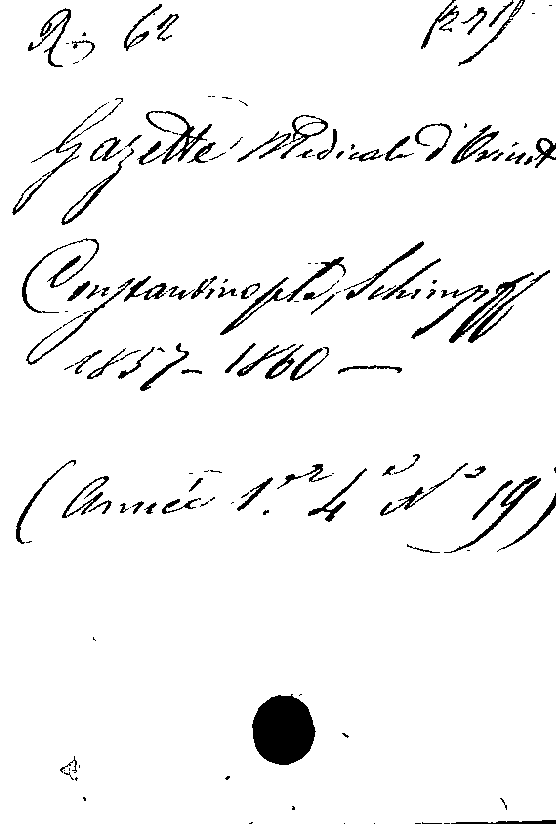 R. 62 (271)
Gazette Medicale d'Orient
Constantinople, Schimpff
1857-1860 —
(Année 1.er 4e No 19)